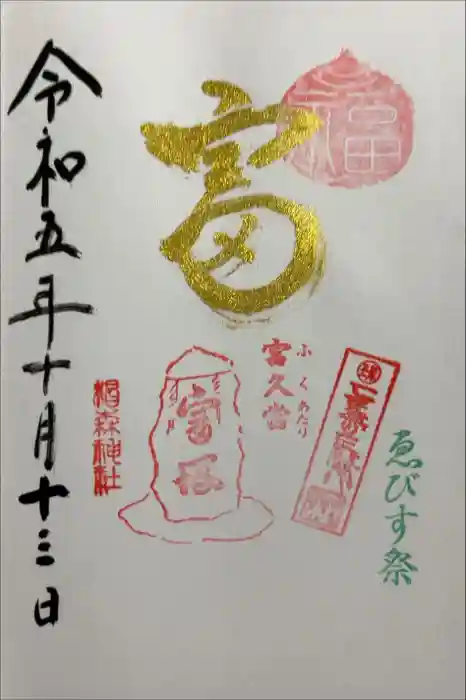 福
富
令和五年十月十三日
ゑびす祭
ふくあたり
富久當
富塚
椙森神社